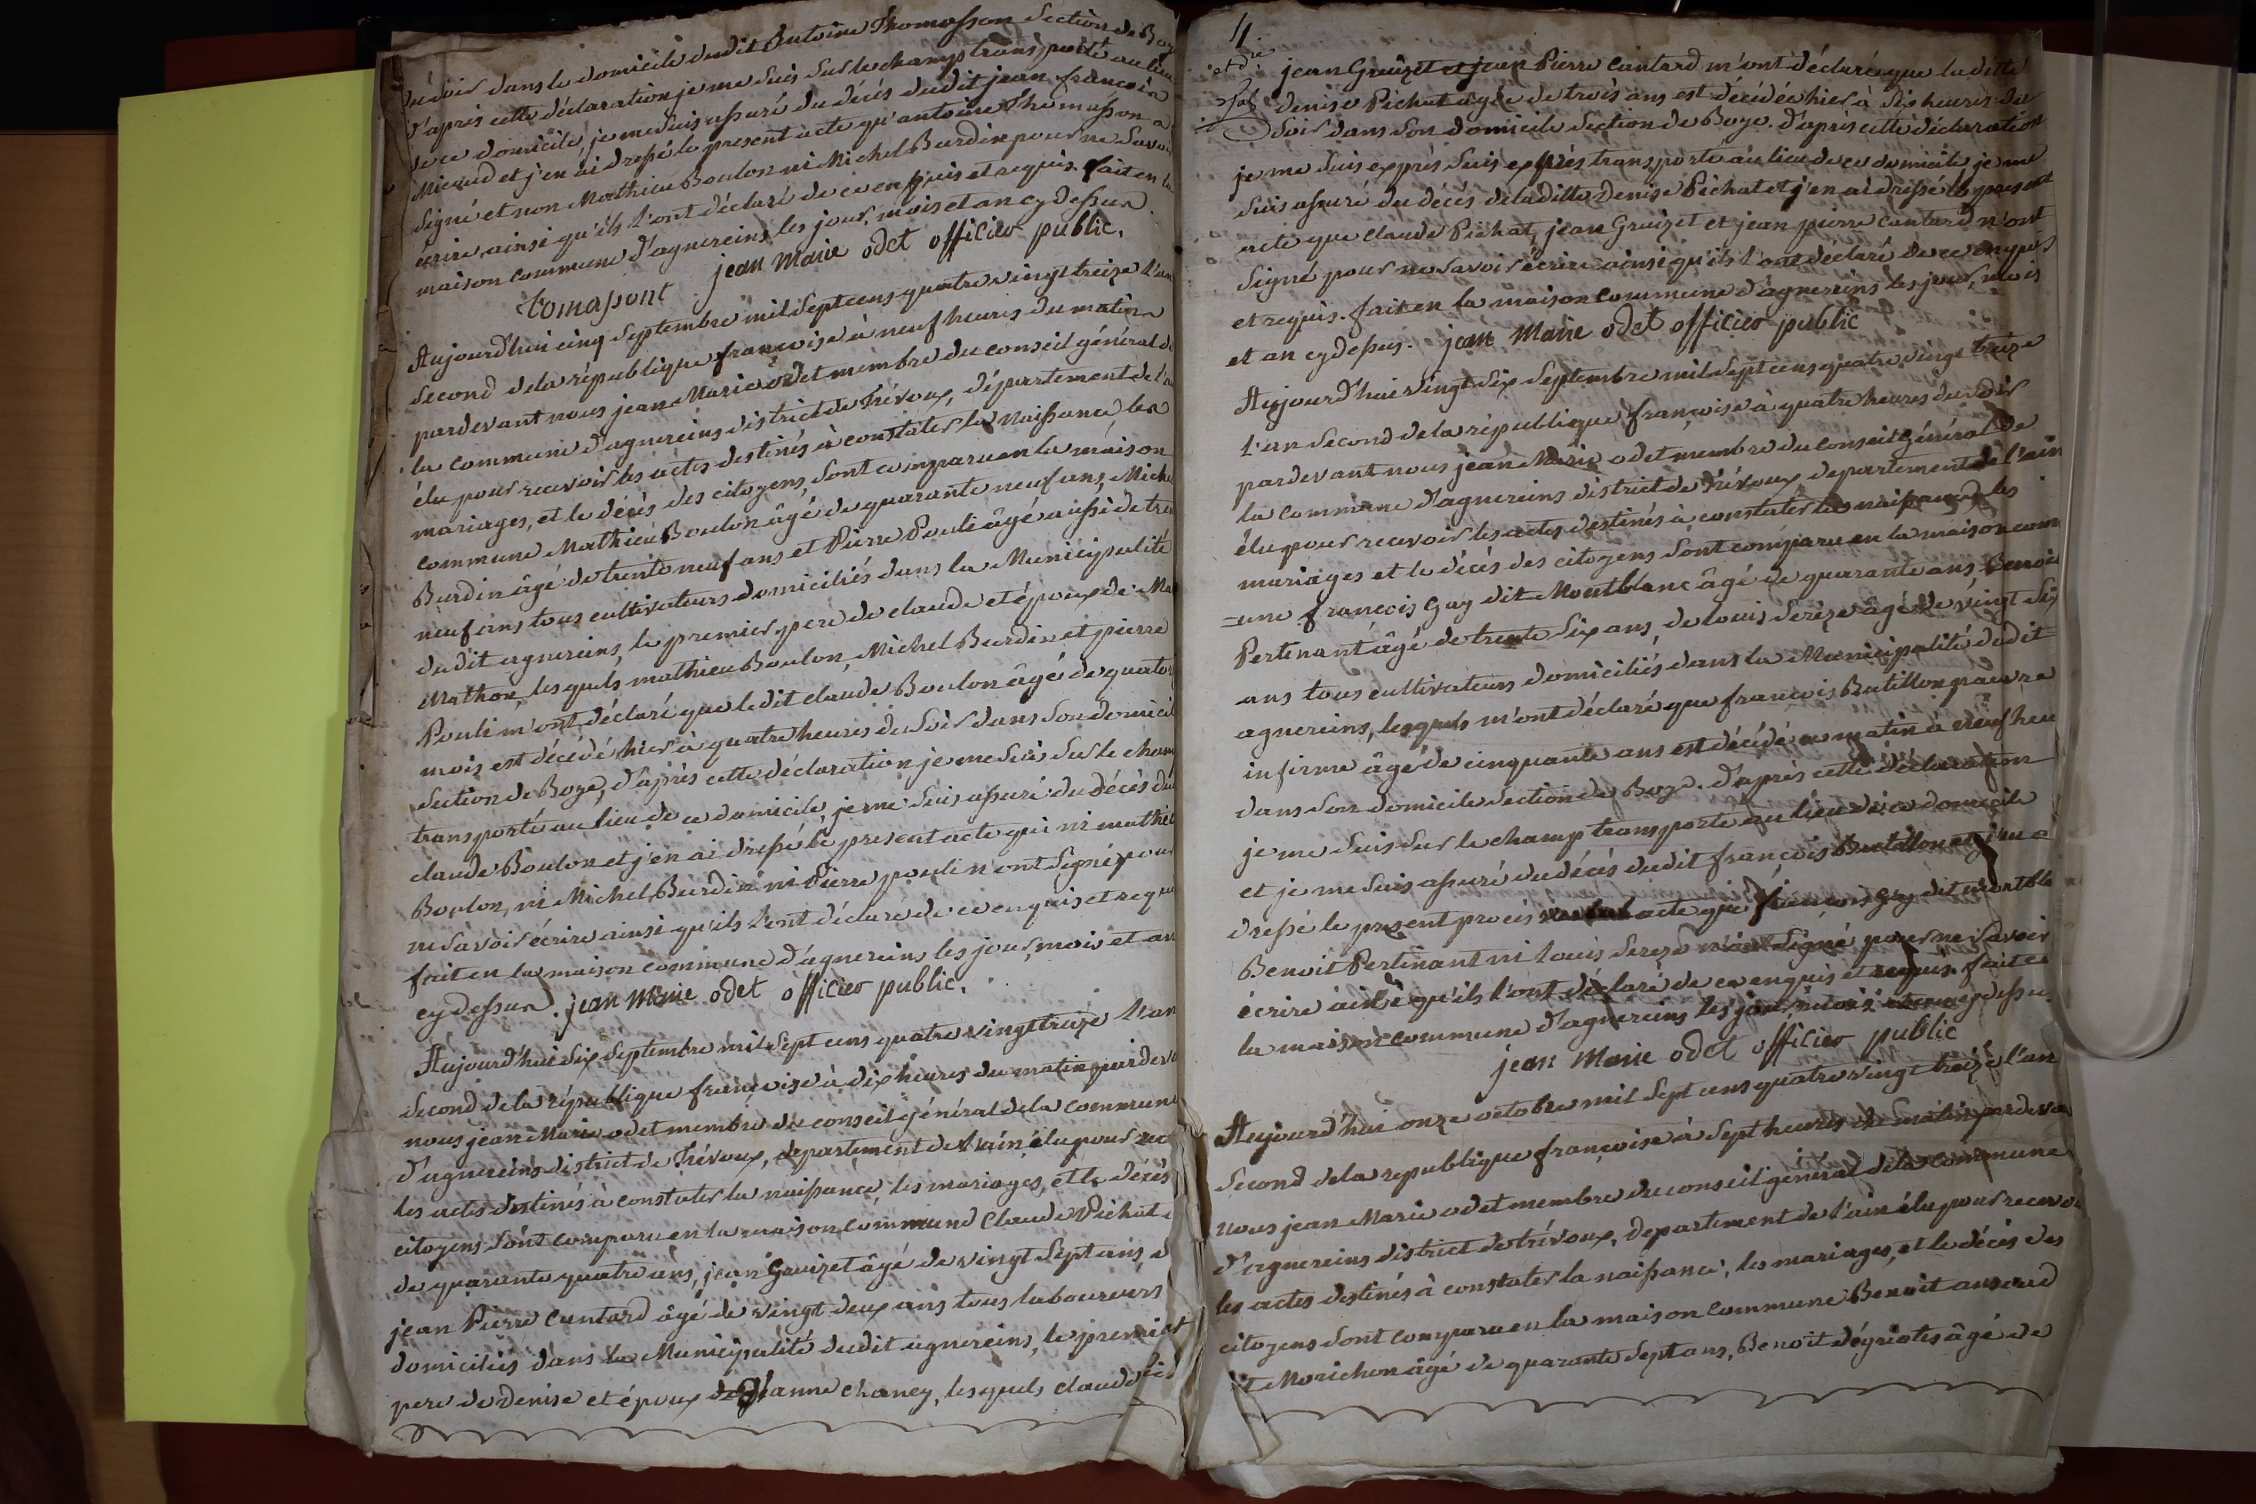 du soir dans le domicile dudit Antoine Thomasson Section de Boye
d'après cette déclaration je me suis sur le champ transporté au lieu
de ce domicile, je me suis assuré du décès dudit jean françois
Micaud et j'en ai dressé le present acte qu'antoine Thomasson a
signé et non Mathieu Boulon ni Michel Burdin pour ne savoir
écrire, ainsi qu'ils l'ont déclaré de ce enquis et requis. fait en la
maison commune d'agnereins, les jour, mois et an cy dessus.
tomasont jean marie odet officier public.
Aujourd'hui cinq septembre mil sept cens quatre vingt treize l'an
second de la république françoise à neuf heures du matin
pardevant nous jean Marie odet membre du conseil général de
la commune d'agnereins district de Trévoux, département de l'ain
élu pour recevoir les actes destinés à constater la naissance, les
mariages, et le décès des citoyens, sont comparu en la maison
commune Mathieu Boulon âgé de quarante neuf ans, Michel
Burdin âgé de trente neuf ans et Pierre Pouli âgé aussi de trente
neuf ans tous cultivateurs domiciliés dans la Municipalité
dudit agnereins, le premier pere de claude et époux de Ma
Mathon, lesquels mathieu Boulon, Michel Burdin et pierre
Pouli m'ont déclaré que le dit claude Boulon âgé de quatorze
mois est décédé hier à quatre heures du soir dans son domicile
Section de Boye, d'après cette déclaration je me suis sur le champ
transporté au lieu de ce domicile, je me suis assuré du décès du
claude Boulon et j'en ai dressé le present acte qui ni mathieu
Boulon, ni Michel Burdin ni Pierre pouli n'ont signé pour
ne savoir écrire ainsi qu'ils l'ont déclaré de ce enquis et requis
fait en la maison commune d'agnereins les jour, mois et an
cy dessus. jean marie odet officier public.
Aujourd'hui six septembre mil sept cens quatre vingt treize l'an
second de la république françoise à dix heures du matin pardevant
nous jean Marie odet membre du conseil général de la commune
d'agnereins district de Trévoux, département de l'ain, élu pour rec
les actes destinés à constater la naissance, les mariages, et le décès
citoyens sont comparu en la maison commune Claude Pichat a
de quarante quatre ans, jean Gruizet âgé de vingt sept ans, et
jean Pierre Cantard âgé de vingt deux ans tous laboureurs
domiciliés dans la Municipalité dudit agnereins, le premier
pere de Denise et époux de jeanne chaney, lesquels claude
4.
jean Gruizet et jean Pierre Cantard m'ont déclaré que la ditte
denise Pichat âgée de trois ans est décédée hier à six heures du
soir dans son domicile section de Boye. d'après cette déclaration
je me suis exprès suis exprès transporté au lieu de ce domicile je me
suis assuré du décès de la ditte Denise Pichat et j'en ai dressé le present
acte que claude Pichat, jean Gruizet et jean pierre cantard n'ont
signé pour ne savoir écrire ainsi qu'ils l'ont déclaré de ce enquis
et requis. fait en la maison commune d'agnereins les jour, mois
et an cy dessus. jean marie odet officier public
Aujourd'hui vingt six septembre mil sept cens quatre vingt treize
l'an second de la république françoise à quatre heures du soir
pardevant nous jean Marie odet membre du conseil général de
la commune d'agnereins district de Trévoux departement de l'ain
élu pour recevoir les actes destinés à constater la naissance, les
mariages et le décès des citoyens sont comparu en la maison comm
=une françois Guy dit Montblanc âgé de quarante ans, Benoit
Pertinant âgé de trente six ans, de louis Sereze âgé de vingt six
ans tous cultivateurs domiciliés dans la Municipalité dudit
agnereins, lesquels m'ont déclaré que françois Butillon pauvre
infirme âgé de cinquante ans est décédé ce matin à neuf heu
dans son domicile section de Boye. d'après cette déclaration
je me suis sur le champ transporté au lieu de ce domicile
et je me suis assuré du décès dudit françois Butillon et j'en a
dressé le present procès verbal acte que françois Guy dit montbla
Benoit Pertinant ni louis Sereze n'ont signé pour ne savoir
écrire ainsi qu'ils l'ont déclaré de ce enquis et requis. fait en
la maison commune d'agnereins les jour, mois et an cy dessus.
jean marie odet officier public
Aujourd'hui onze octobre mil sept cens quatre vingt treize l'an
second de la republique françoise à sept heures du matin pardevan
nous jean Marie odet membre du conseil général de la commune
d'agnereins district de trévoux, departement de l'ain élu pour recevoi
les actes destinés à constater la naissance, les mariages, et le décès des
citoyens sont comparu en la maison commune Benoit
dit Morichon âgé de quarante sept ans, Benoit dégriotes âgé de